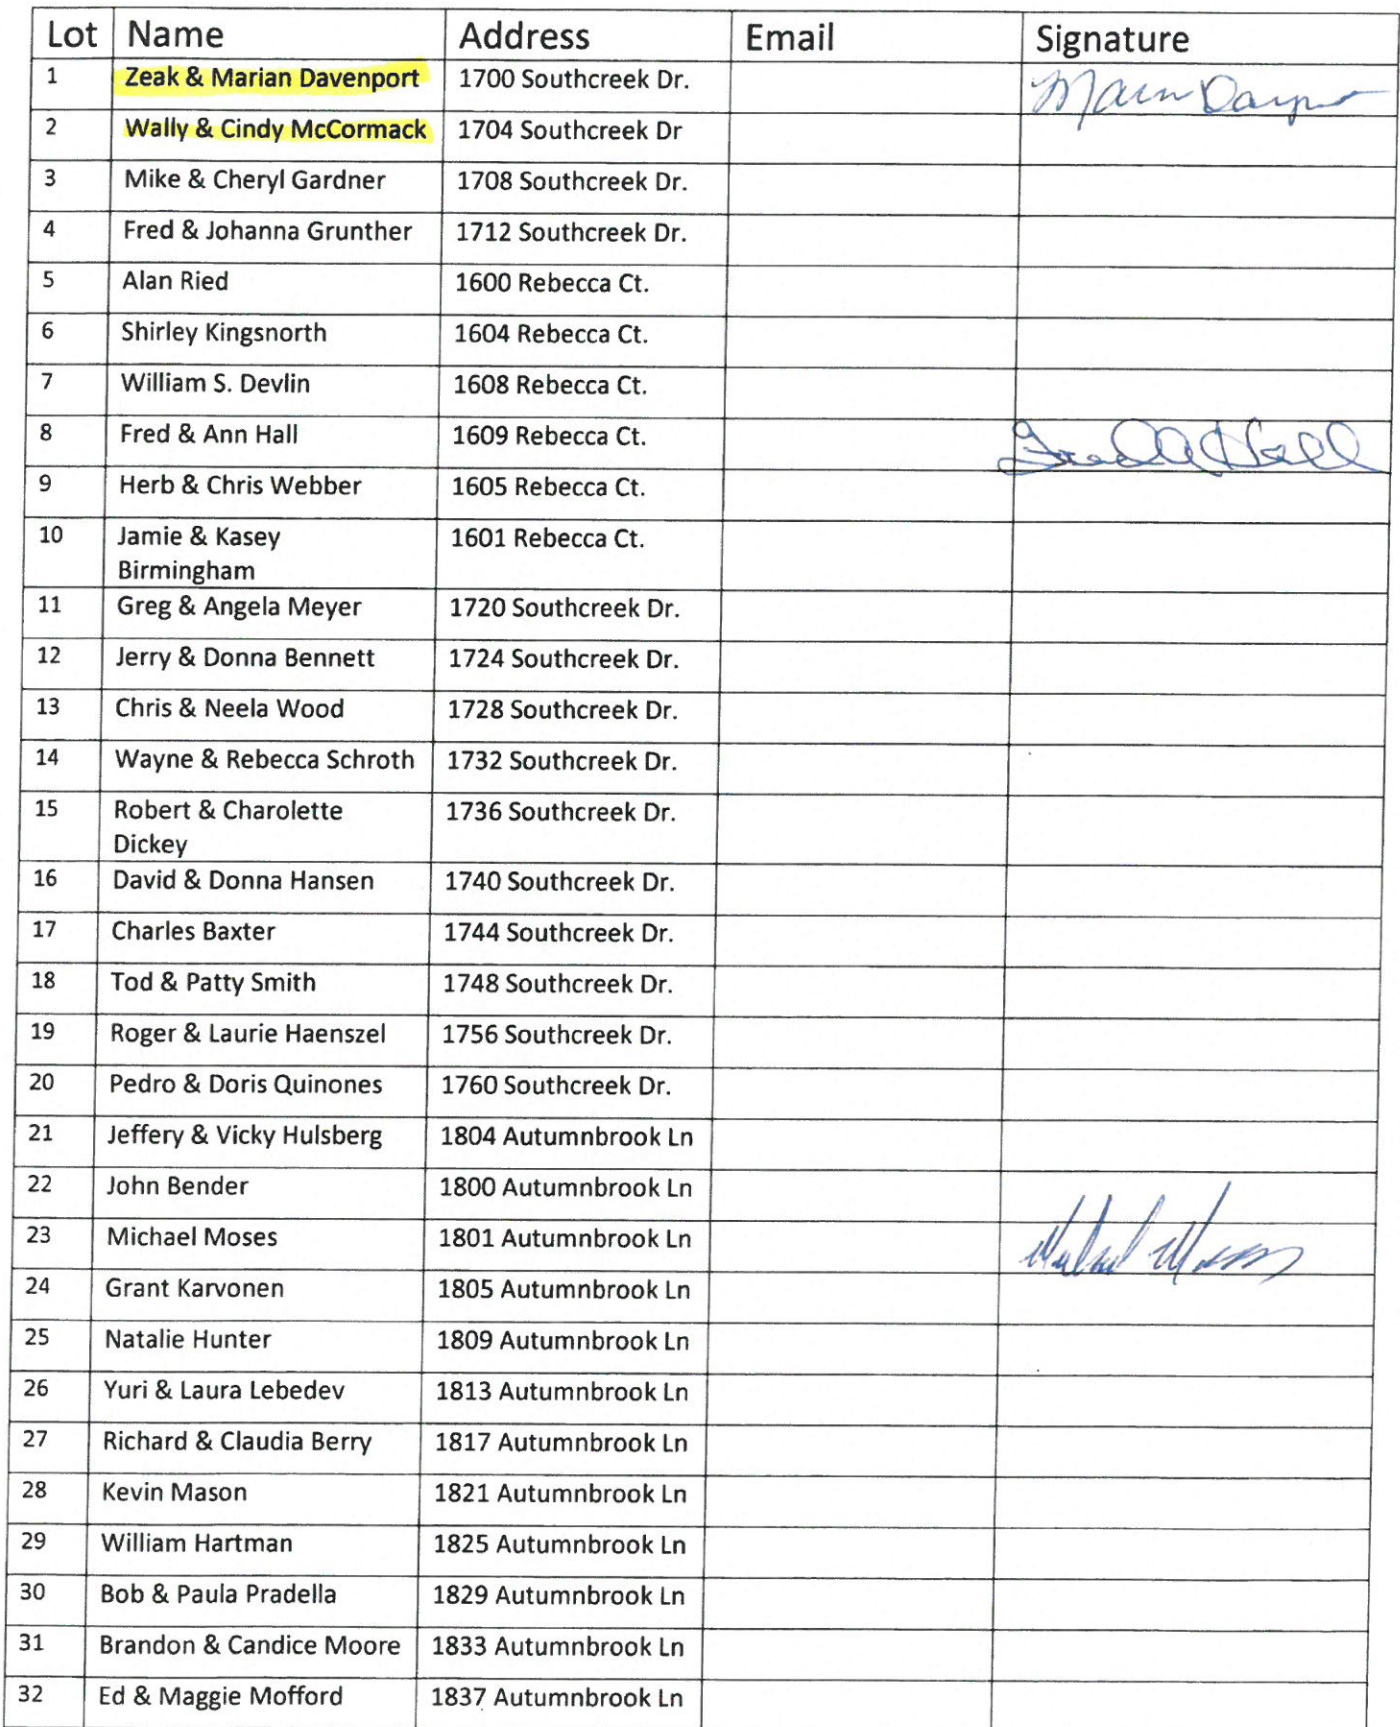 Lot Name Address Email Signature
1 Zeak & Marian Davenport 1700 Southcreek Dr.
2 Wally & Cindy McCormack 1704 Southcreek Dr
3 Mike & Cheryl Gardner 1708 Southcreek Dr.
4 Fred & Johanna Grunther 1712 Southcreek Dr.
5 Alan Ried 1600 Rebecca Ct.
6 Shirley Kingsnorth 1604 Rebecca Ct.
7 William S. Devlin 1608 Rebecca Ct.
8 Fred & Ann Hall 1609 Rebecca Ct.
9 Herb & Chris Webber 1605 Rebecca Ct.
10 Jamie & Kasey 1601 Rebecca Ct.
Birmingham
11 Greg & Angela Meyer 1720 Southcreek Dr.
12 Jerry & Donna Bennett 1724 Southcreek Dr.
13 Chris & Neela Wood 1728 Southcreek Dr.
14 Wayne & Rebecca Schroth 1732 Southcreek Dr.
15 Robert & Charolette 1736 Southcreek Dr.
Dickey
16 David & Donna Hansen 1740 Southcreek Dr.
17 Charles Baxter 1744 Southcreek Dr.
18 Tod & Patty Smith 1748 Southcreek Dr.
19 Roger & Laurie Haenszel 1756 Southcreek Dr.
20 Pedro & Doris Quinones 1760 Southcreek Dr.
21 Jeffery & Vicky Hulsberg 1804 Autumnbrook Ln
22 John Bender 1800 Autumnbrook Ln
23 Michael Moses 1801 Autumnbrook Ln Michael Moses
24 Grant Karvonen 1805 Autumnbrook Ln
25 Natalie Hunter 1809 Autumnbrook Ln
26 Yuri & Laura Lebedev 1813 Autumnbrook Ln
27 Richard & Claudia Berry 1817 Autumnbrook Ln
28 Kevin Mason 1821 Autumnbrook Ln
29 William Hartman 1825 Autumnbrook Ln
30 Bob & Paula Pradella 1829 Autumnbrook Ln
31 Brandon & Candice Moore 1833 Autumnbrook Ln
32 Ed & Maggie Mofford 1837 Autumnbrook Ln